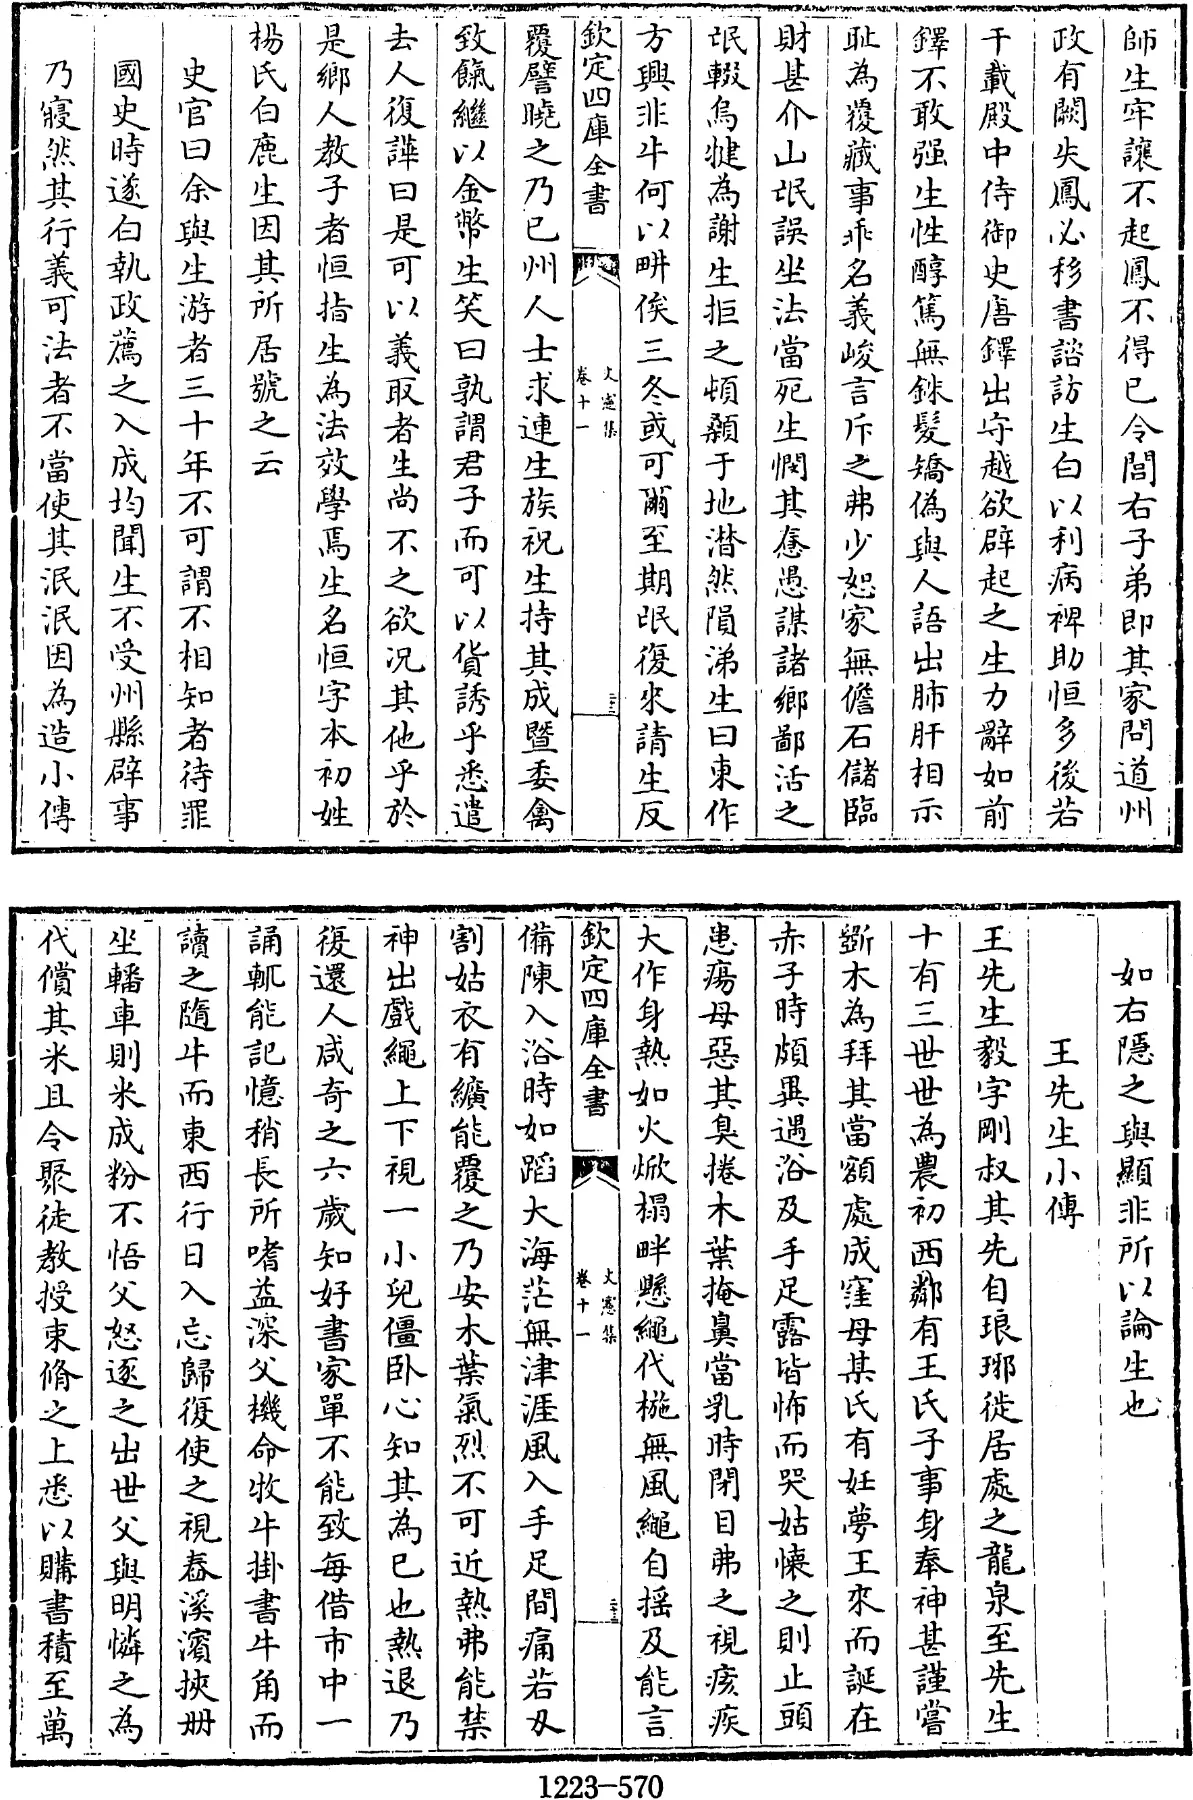 師生牢讓不起鳳不得已令閭右子弟即其家問道州
政有闕失鳳必移書諮訪生白以利病裨助恒多後若
干載殿中侍御史唐鐸出守越欲辟起之生力辭如前
鐸不敢强生性醇篤無銖髮矯偽與人語出肺肝相示
耻為覆藏事乖名義峻言斥之弗少恕家無儋石儲臨
財甚介山氓誤坐法當死生憫其憃愚謀諸鄉鄙活之
氓輟烏犍為謝生拒之頓顙于地潸然隕涕生曰東作
方興非牛何以畊俟三冬或可爾至期氓復來請生反
欽定四庫全書
文憲集
卷十一
覆譬曉之乃已州人士求連生族祝生持其成暨委禽
致餼繼以金幣生笑曰孰謂君子而可以貨誘乎悉遣
去人復譁曰是可以義取者生尚不之欲况其他乎於
是鄉人教子者恒指生為法效學焉生名恒字本初姓
楊氏白鹿生因其所居號之云
史官曰余與生游者三十年不可謂不相知者待罪
國史時遂白執政薦之入成均聞生不受州縣辟事
乃寢然其行義可法者不當使其泯泯因為造小傳
如右隱之與顯非所以論生也
王先生小傳
王先生毅字剛叔其先自琅琊徙居處之龍泉至先生
十有三世世為農初西鄰有王氏子事身奉神甚謹嘗
斵木為拜其當額處成窪母某氏有妊夢王來而誕在
赤子時頗異遇浴及手足露皆怖而哭姑懷之則止頭
患瘍母惡其臭捲木葉掩鼻當乳時閉目弗之視痎疾
大作身熱如火焮榻畔懸繩代椸無風繩自摇及能言
欽定四庫全書
文憲集
卷十一
備陳入浴時如蹈大海茫無津涯風入手足間痛若刃
割姑衣有纊能覆之乃安木葉氣烈不可近熱弗能禁
神出戲繩上下視一小兒僵卧心知其為己也熱退乃
復還人咸奇之六歲知好書家單不能致每借市中一
誦輒能記憶稍長所嗜益深父機命牧牛掛書牛角而
讀之隨牛而東西行日入忘歸復使之視舂溪濱挾册
坐轓車則米成粉不悟父怒逐之出世父與明憐之為
代償其米且令聚徒教授束脩之上悉以購書積至萬
1223-570